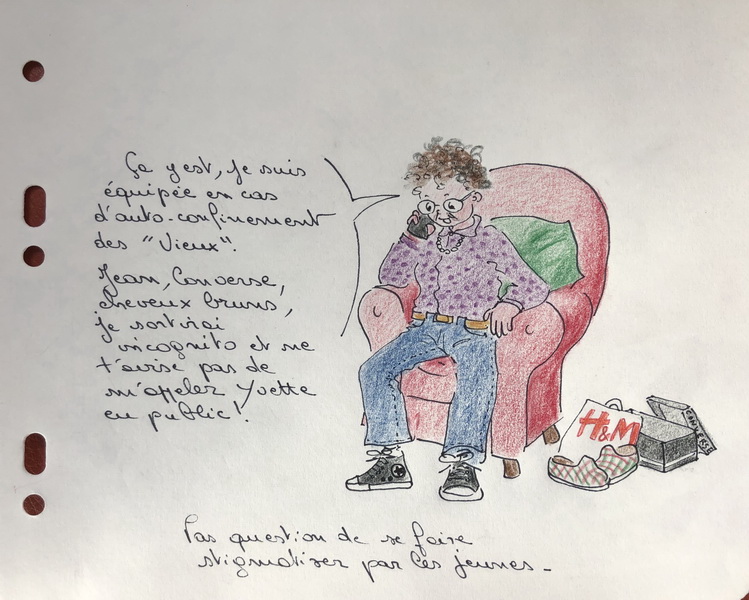 Ça y est, je suis
équipée en cas
d'auto-confinement
des "Vieux".
Jean, Converse,
cheveux bruns,
je sortirai
incognito et ne
t'avise pas de
m'appeler Yvette
en public!
H&M
CONVERSE
Pas question de se faire
stigmatiser par les jeunes -